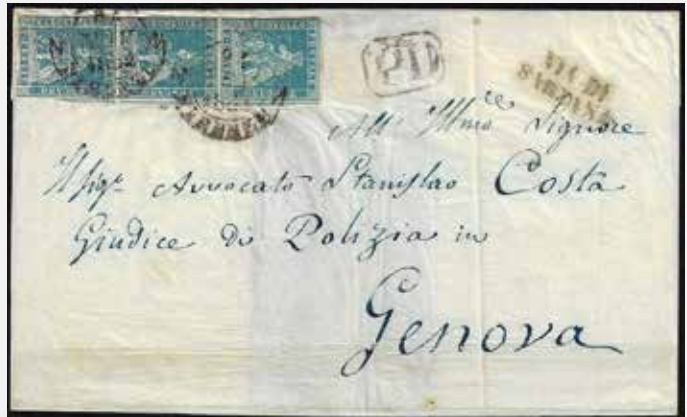 P.D.
VIA DI
SARZANA
All' Illmo Signore
Il Sigr Avvocato Stanislao Costa
Giudice di Polizia in
Genova